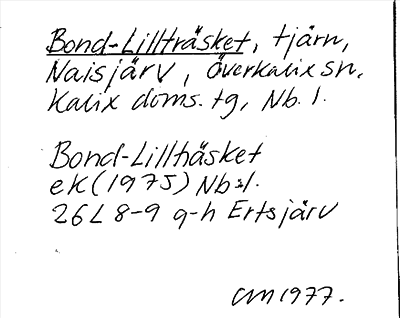 Bond-Lillträsket, tjärn,
Naisjärv, Överkalix sn,
Kalix doms. tg, Nb. l.
Bond-Lillträsket
ek (1975) Nb:s l.
26L 8-9 g-h Ertsjärv
CM 1977.